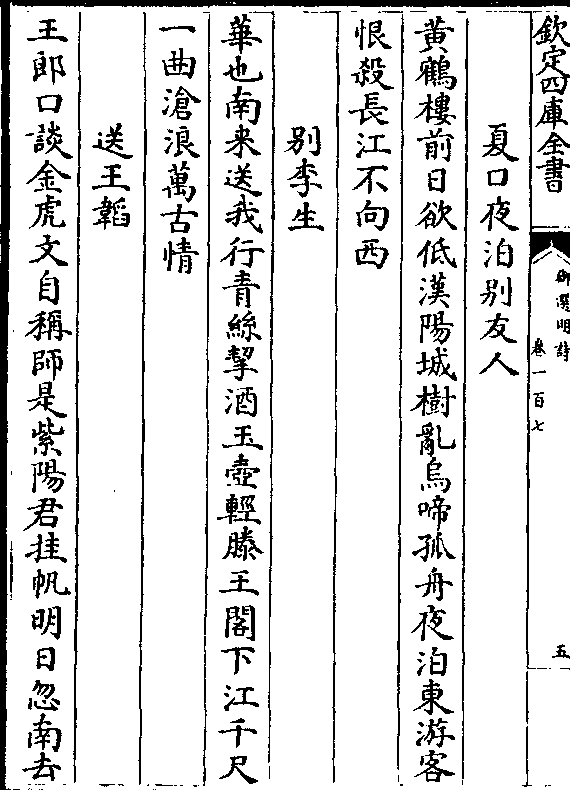 欽定四庫全書
御選明詩
卷一百七
五
夏口夜泊别友人
黃鶴樓前日欲低漢陽城樹亂烏啼孤舟夜泊東游客
恨殺長江不向西
别李生
華也南来送我行青絲挈酒玉壺輕滕王閣下江千尺
一曲滄浪萬古情
送王韜
王郎口談金虎文自稱師是紫陽君挂帆明日忽南去